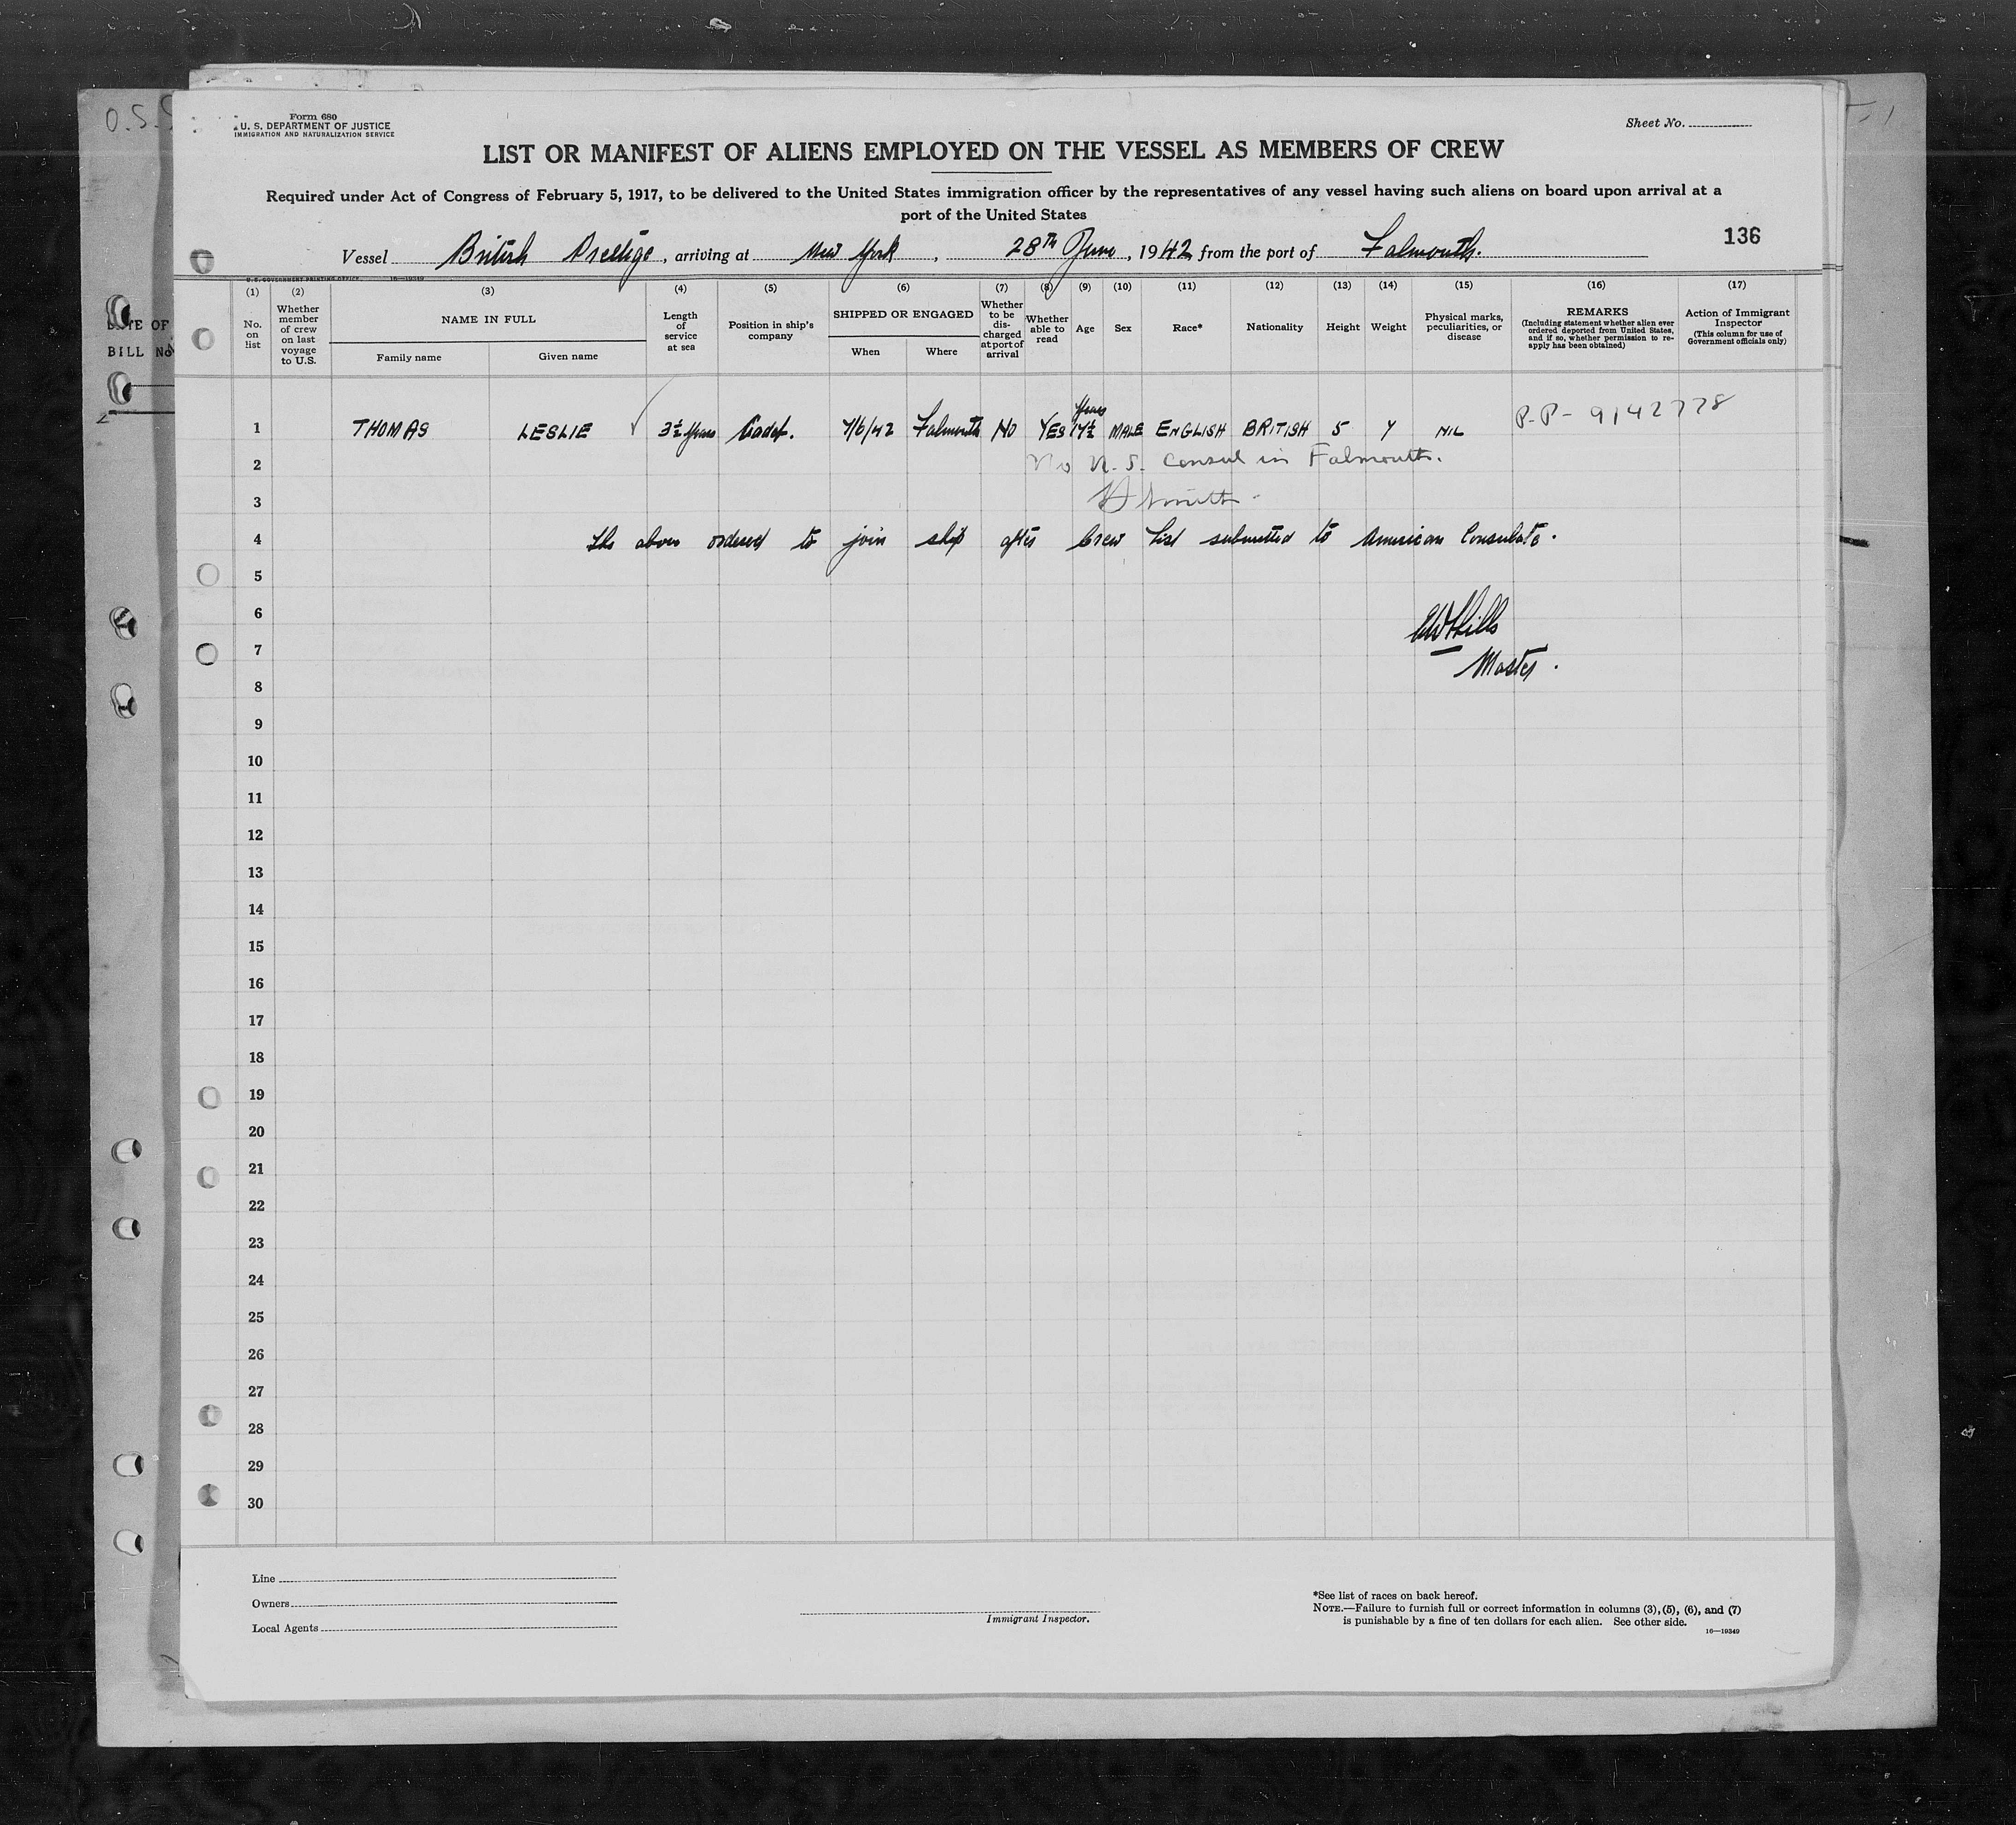 O.S.S
Form 680
U. S. DEPARTMENT OF JUSTICE
IMMIGRATION AND NATURALIZATION SERVICE
Sheet No.
LIST OR MANIFEST OF ALIENS EMPLOYED ON THE VESSEL AS MEMBERS OF CREW
Required under Act of Congress of February 5, 1917, to be delivered to the United States immigration officer by the representatives of any vessel having such aliens on board upon arrival at a
port of the United States
136
Vessel British Prestige, arriving at New York, 28th June, 1942 from the port of Falmouth.
U.S. GOVERNMENT PRINTING OFFICE 16—19349
(1) (2) (3) (4) (5) (6) (7) (8) (9) (10) (11) (12) (13) (14) (15) (16) (17)
No. on list
Whether member of crew on last voyage to U.S.
NAME IN FULL
Family name
Given name
Length of service at sea
Position in ship's company
SHIPPED OR ENGAGED
When
Where
Whether to be discharged at port of arrival
Whether able to read
Age
Sex
Race*
Nationality
Height
Weight
Physical marks, peculiarities, or disease
REMARKS
(Including statement whether alien ever ordered deported from United States, and if so, whether permission to reapply has been obtained)
Action of Immigrant Inspector
(This column for use of Government officials only)
DATE OF
BILL No
1 THOMAS LESLIE 3½ Years Cadet. 7/6/42 Falmouth NO YES Years 17½ MALE ENGLISH BRITISH 5 NIL P.P- 9142778
2 No U.S. Consul in Falmouth.
3
4 The above ordered to join ship after Crew List submitted to American Consulate.
5
6 Hills
7 Master.
8
9
10
11
12
13
14
15
16
17
18
19
20
21
22
23
24
25
26
27
28
29
30
Line
Owners
Local Agents
Immigrant Inspector.
*See list of races on back hereof.
NOTE.—Failure to furnish full or correct information in columns (3), (5), (6), and (7)
is punishable by a fine of ten dollars for each alien. See other side.
16—19349